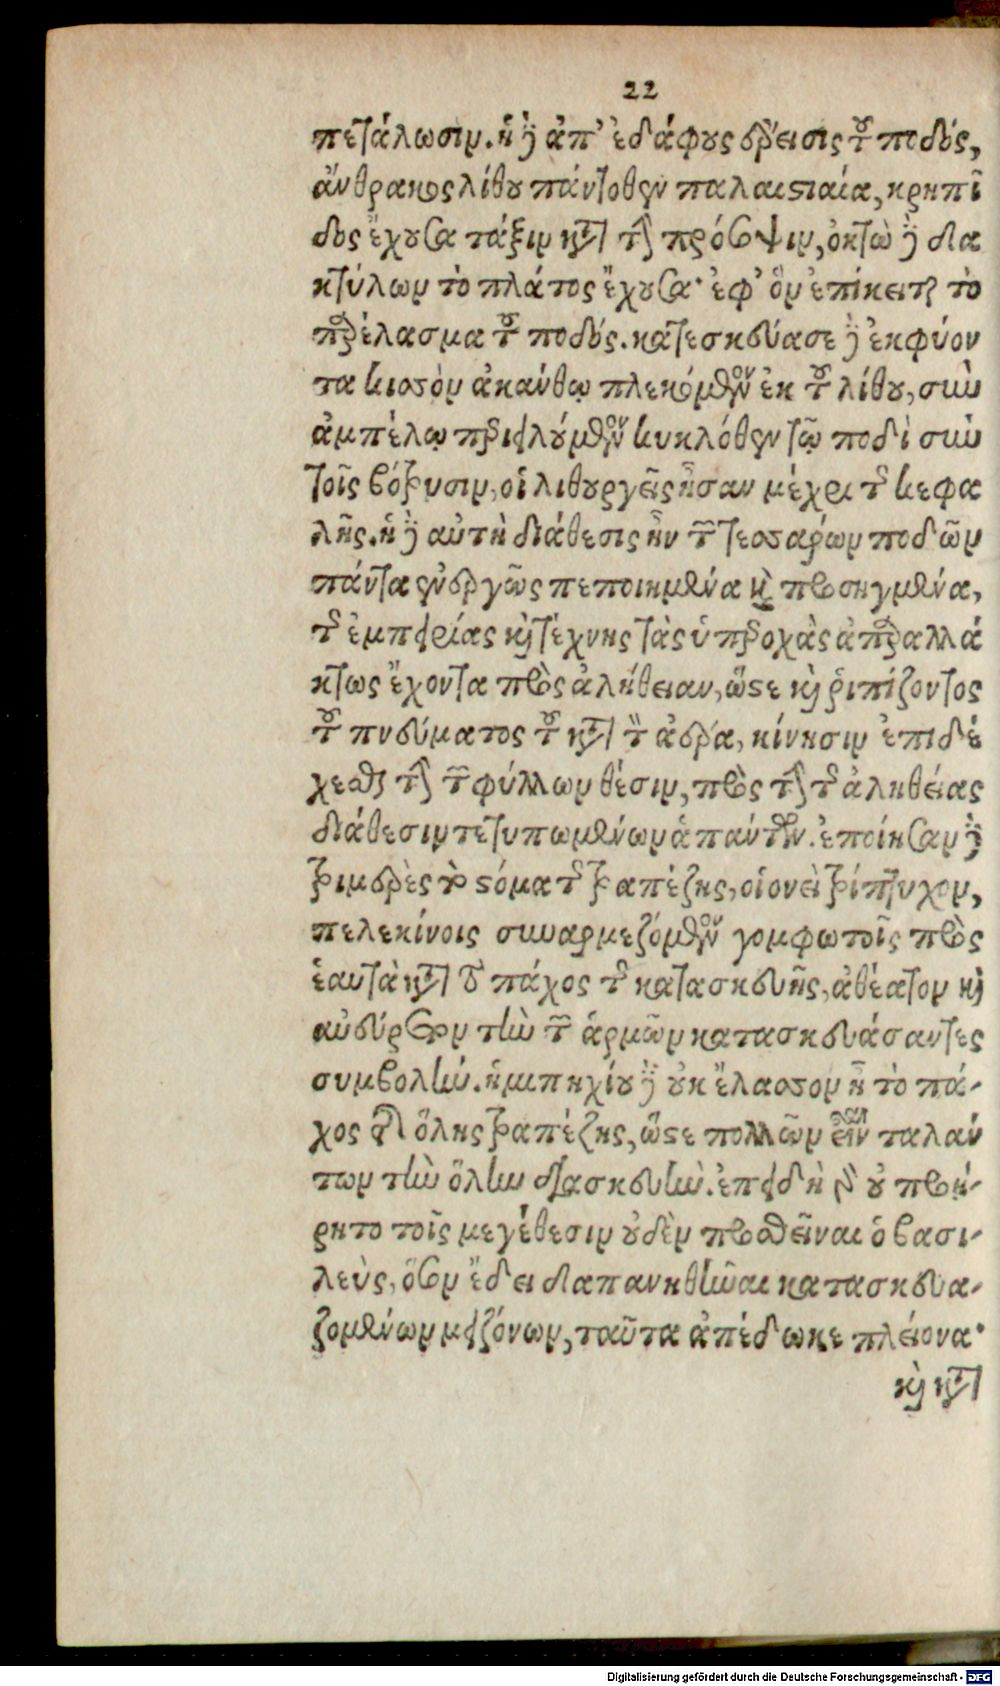 22
πετάλωσιν. ἡ δὲ ἀπ’ ἐδάφους ἔρεισις τοῦ ποδὸς,
ἄνθρακος λίθου πάντοθεν παλαιστιαία, κρηπῖ
δος ἔχουσα τάξιν κατὰ τὴν πρόσοψιν, ὀκτὼ δὲ δα
κτύλων τὸ πλάτος ἔχουσα· ἐφ’ ὃν ἐπίκειται τὸ
πᾶν ἔλασμα τοῦ ποδός. κατεσκεύασε δὲ ἐκφύον
τα κισσὸν ἀκάνθῳ πλεκόμενον ἐκ τοῦ λίθου, σὺν
ἀμπέλῳ περιειλούμενον κυκλόθεν τῷ ποδὶ σὺν
τοῖς βότρυσιν, οἱ λιθουργεῖς ἦσαν μέχρι τῆς κεφα
λῆς. ἡ δὲ αὐτὴ διάθεσις ἦν τῶν τεσσάρων ποδῶν
πάντα ἐνεργῶς πεποιημένα καὶ προσηγμένα,
τῆς ἐμπειρίας καὶ τέχνης τὰς ὑπεροχὰς ἀπαραλλά
κτως ἔχοντα πρὸς ἀλήθειαν, ὥστε καὶ ῥιπίζοντος
τοῦ πνεύματος τοῦ κατὰ τὸν ἀέρα, κίνησιν ἐπιδέ
χεσθαι τὴν τῶν φύλλων θέσιν, πρὸς τὴν τῆς ἀληθείας
διάθεσιν τετυπωμένων ἁπάντων. ἐποίησαν δὲ
τριμερὲς τὸ στόμα τῆς τραπέζης, οἱονεὶ τρίπτυχον,
πελεκίνοις συναρμεζόμενον γομφωτοῖς πρὸς
ἑαυτὰ κατὰ τὸ πάχος τῆς κατασκευῆς, ἀθέατον καὶ
ἀνεύρετον τὴν τῶν ἁρμῶν κατασκευάσαντες
συμβολήν. ἡμιπηχίου δὲ οὐκ ἔλασσον ἦν τὸ πά-
χος τῆς ὅλης τραπέζης, ὥστε πολλῶν εἶναι ταλάν
των τὴν ὅλην διασκευήν. ἐπειδὴ γὰρ οὐ προῄ-
ρητο τοῖς μεγέθεσιν οὐδὲν προσθεῖναι ὁ βασι-
λεὺς, ὅσον ἔδει δαπανηθῆναι κατασκευα-
ζομένων μειζόνων, ταῦτα ἀπέδωκε πλείονα·
καὶ κατὰ
Digitalisierung gefördert durch die Deutsche Forschungsgemeinschaft - DFG